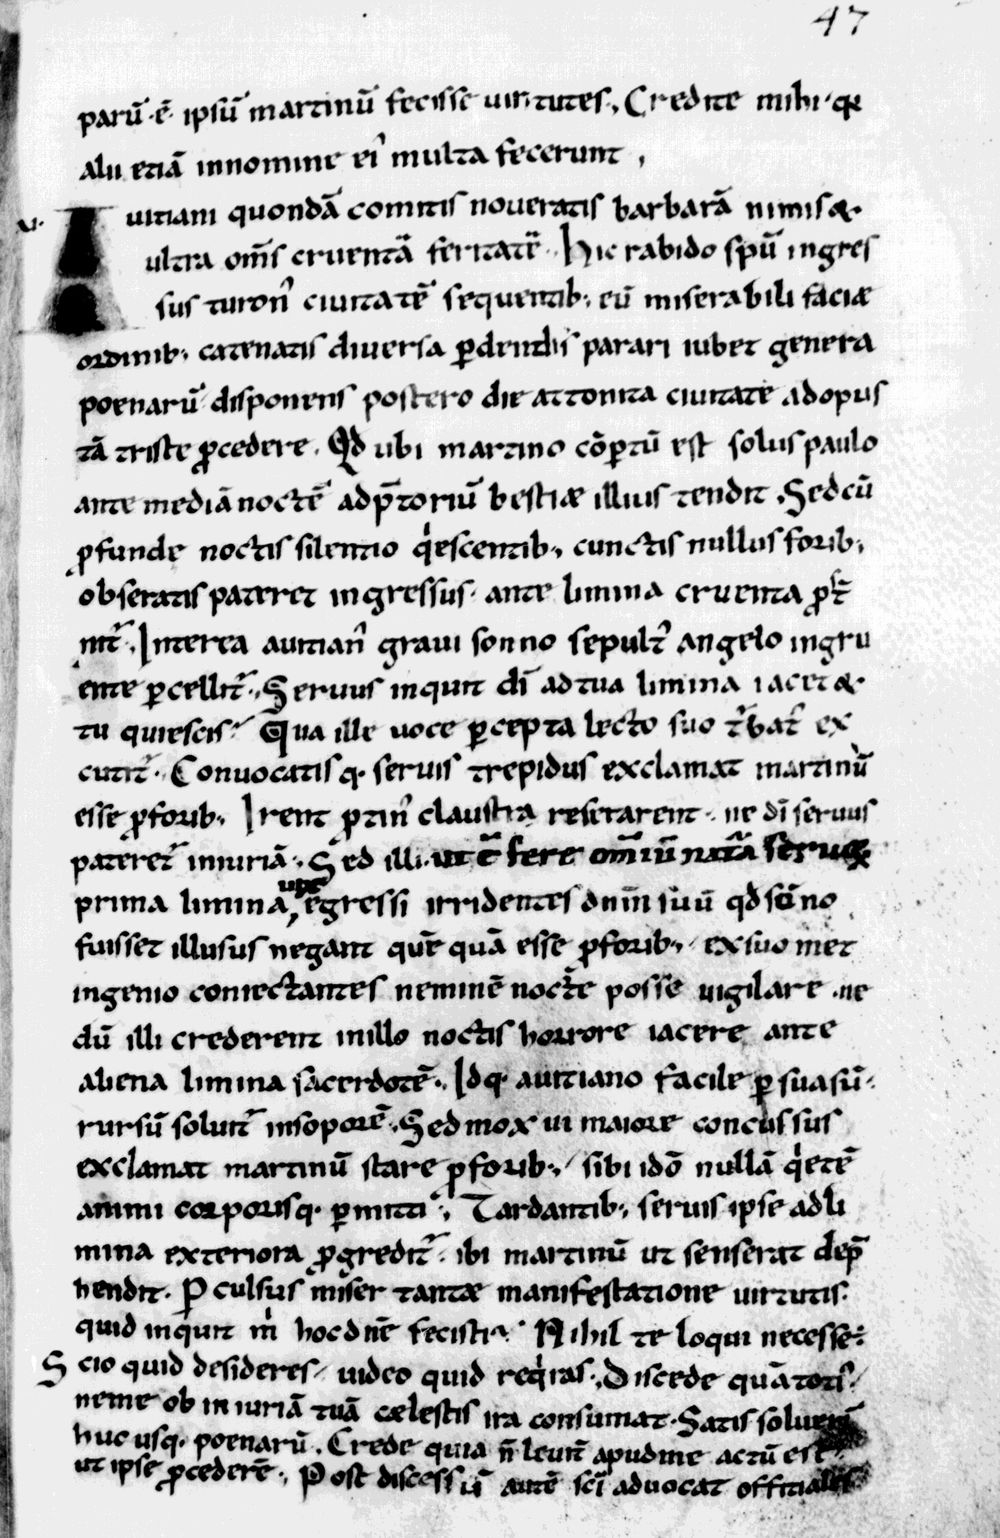 47
parū·ē· ipsū martinū fecisse uirtutes·, Credite mihi·qꝛ
alii etiā innomine ei᾽ multa fecerunt ,
·xi· Auitiani quondā comitis noueratis barbarā nimis &·
ultra om̄s cruentā feritatē· Hic rabido spū ingres
sus turon᾽ ciuitatē sequentib; eū miserabili faciæ
ordinib; catenatis diuersa ꝑdendis parari iubet genera
poenarū᾽ disponens postero die attonita ciuitate adopus
tā triste ꝓcedere· Qd ubi martino cōꝑtū est solus paulo
ante mediā noctē adp̄toriū bestiæ illius tendit· Sedcū
ꝓfunde noctis silentio qͥescentib;, cunctis nullus forib;,
obseratis pateret ingressus· ante limina cruenta ꝓst̄
nit᾽·, Interea auitian᾽ graui sonno sepult᾽ angelo ingru
ente ꝑcellit᾽·, Seruus inquit dī adtua limina iacet &·
tu quiescis᾽· Qua ille uoce ꝑcepta lecto suo t᾽bat᾽ ex
cutit᾽· Conuocatisq· seruis trepidus exclamat martinū
esse ꝓforib;, Irent ꝓtin᾽ claustra reserarent· ne dī seruus
pateret᾽ iniuriā·, Sed illi· ut ē fere om̄iū natā seruoꝝ
prima limina, uix egressi irridentes dn̄m suū qd sōno
fuisset illusus negant quē quā esse ꝓforib;, exsuo met
ingenio coniectantes neminē nocte posse uigilare ·ne
dū illi crederent inillo noctis horrore iacere ante
aliena limina sacerdotē·, Idq· auitiano facile ꝑsuasū·
rursū soluit᾽ insoporē·, Sed mox ui maiore concussus
exclamat martinū stare ꝓforib;, sibi idō nullā qͥetē
animi corporisq· ꝑmitti·, Tardantib; seruis ipse adli
mina exteriora ꝓgredit᾽· ibi martinū ut senserat dep̄
hendit· Pculsus miser tantæ manifestatione uirtutis·
quid inquit m̊ hoc dn̄e fecisti᾽· Nihil te loqui necesse·:
Scio quid desideres᾽ uideo quid reqͥras·, Discede quātoti᾽
neme ob iniuriā tuā cælestis ira consumat· Satis
huc usq· poenarū· Crede quia n̄ leuit᾽ apudme actū est
ut ipse ꝓcederē·, Post discessū autē scī aduocat